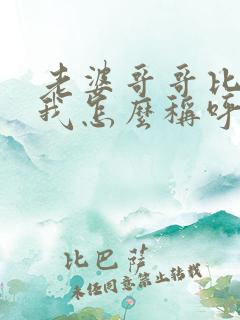 老婆哥哥比
我怎麼稱呼
比巴薩
未經同意禁止轉載